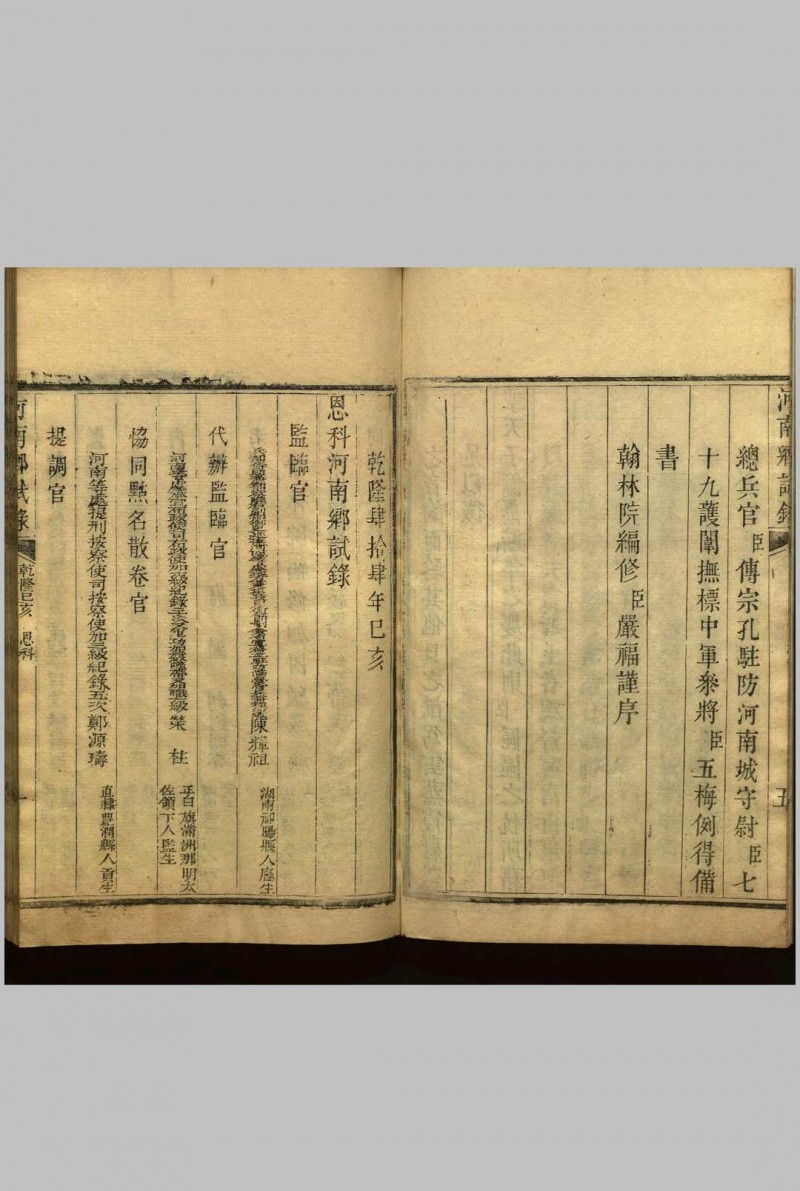 河南鄉試錄
五
總兵官臣傅宗孔駐防河南城守尉臣七
十九護闈撫標中軍叅將臣五梅例得備
書
翰林院編修臣嚴福謹序
乾隆肆拾肆年已亥
恩科河南鄉試錄
監臨官
陳輝祖
湖南祁陽縣人廕生
代辦監臨官
榮柱
正白旗滿洲那明太
佐領下人監生
協同點名散卷官
河南等處提刑按察使司按察使加三級紀錄五次鄭源璹
直隸豐潤縣人貢生
提調官
河南鄉試錄
乾隆己亥 恩科
一